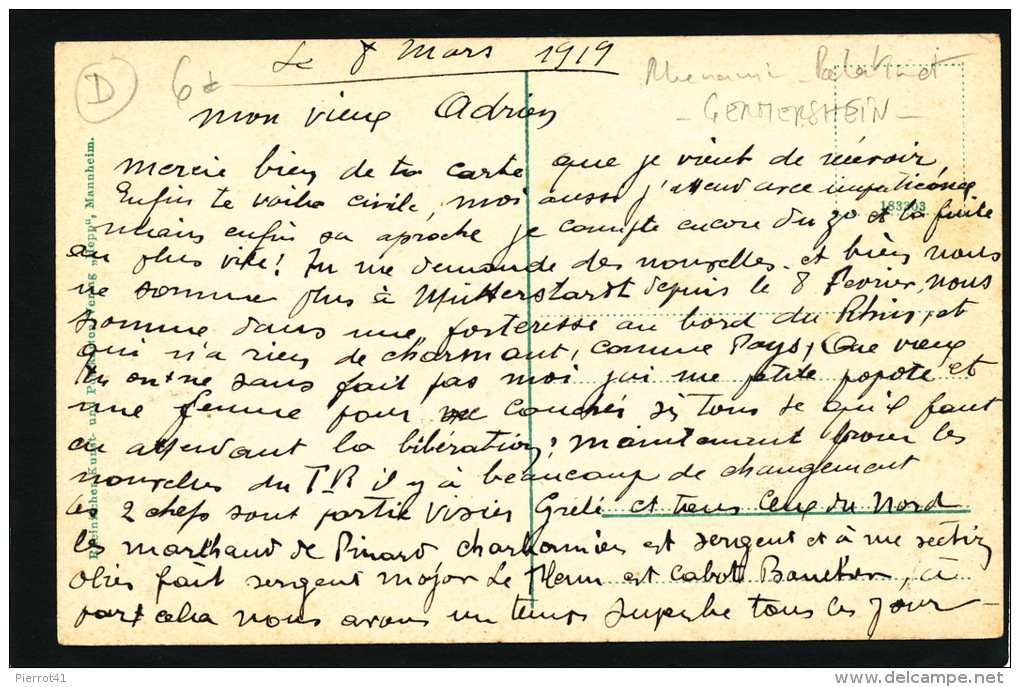 Le 8 Mars 1919
D
6
Rhenanie Palatinat
- GERMERSHEIN -
mon vieux Adrien
mercie bien de ta carte que je vient de récevoir
Enfin te voilla civile, moi aussi j'attend avec impaticence
mais enfin sa aproche je compte encore du 30 et la fuite
au plus vite! Tu me demande des nouvelles et bien nous
ne somme plus à Mutterstardt depuis le 8 Fevrier, nous
somme dans une forteresse au bord du Rhin, et
qui n'a rien de charmant, comme Pays, Que vieux
tu on ne sans fait pas moi j'ai me petite popote et
une femme pour me couchés si tous se qu'il faut
en attendant la libération! maintenant pour les
nouvelles du T.R il y à beaucoup de changement
les 2 chefs sont partie Grélé et tous ceux du Nord
les marchand de Pinard charbonnier est sergent et à me section
fait sergent major Le est cabot Banether, à
part celia nous avons un temps superbe tous les jour
Rheinischer Kunst- und Verlag „Hepp“, Mannheim.
183203
Pierrot41
www.delcampe.net